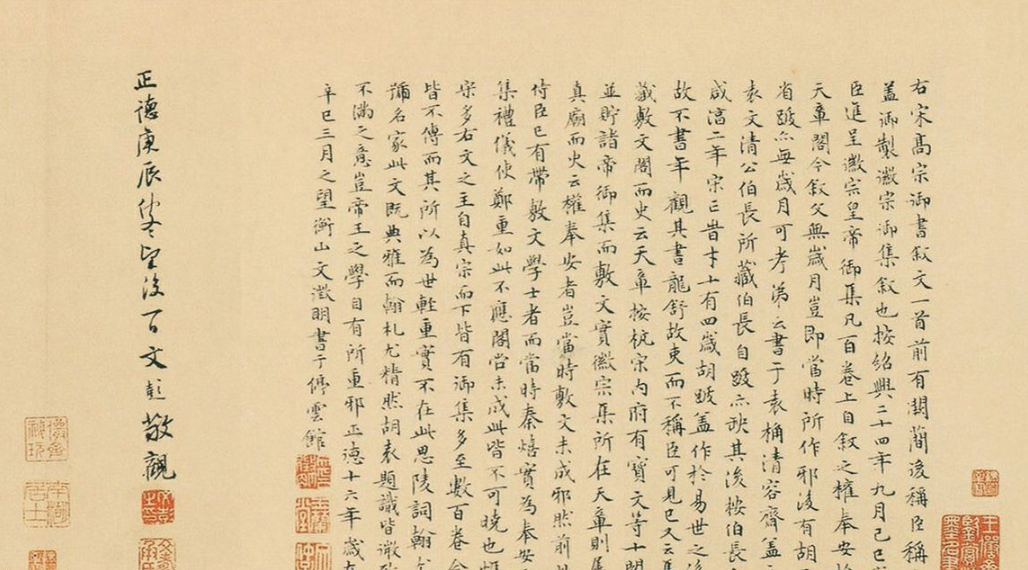 右宋高宗御書叙文一首前有闕簡後稱臣稱
盖御製徽宗御集叙也按紹興二十四年九月己巳
臣進呈徽宗皇帝御集凡百卷上自叙之權奉安
天章閣今叙文無歲月豈即當時所作邪後有胡
省跋亦無歲月可考第云書于袁桷清容齋盖
袁文清公伯長所藏伯長自跋亦缺其後按伯長
咸淳二年宋亡昔才十有四歲胡跋盖作於易世之後
故不書年觀其書龍舒故吏而不稱臣可見已又云
藏敷文閣而史云天章按杭宋内府有寶文等十閣
並貯諸帝御集而敷文實徽宗集所在天章則
真廟而史云權奉安者豈當時敷文未成邪然前
侍臣已有帶敷文學士者而當時秦熺實為奉安
集禮儀使鄭重如此不應閣尚未成此皆不可曉也
宋多右文之主自真宗而下皆有御集多至數百卷
皆不傳而其所以為世輕重實不在此思陵詞翰
彌名家此文既典雅而翰札尤精然胡袁題識皆微
不滿之意豈帝王之學自有所重邪正德十六年歲在
辛巳三月之望衡山文徵明書于停雲館
正德庚辰
望後一日文彭敬觀